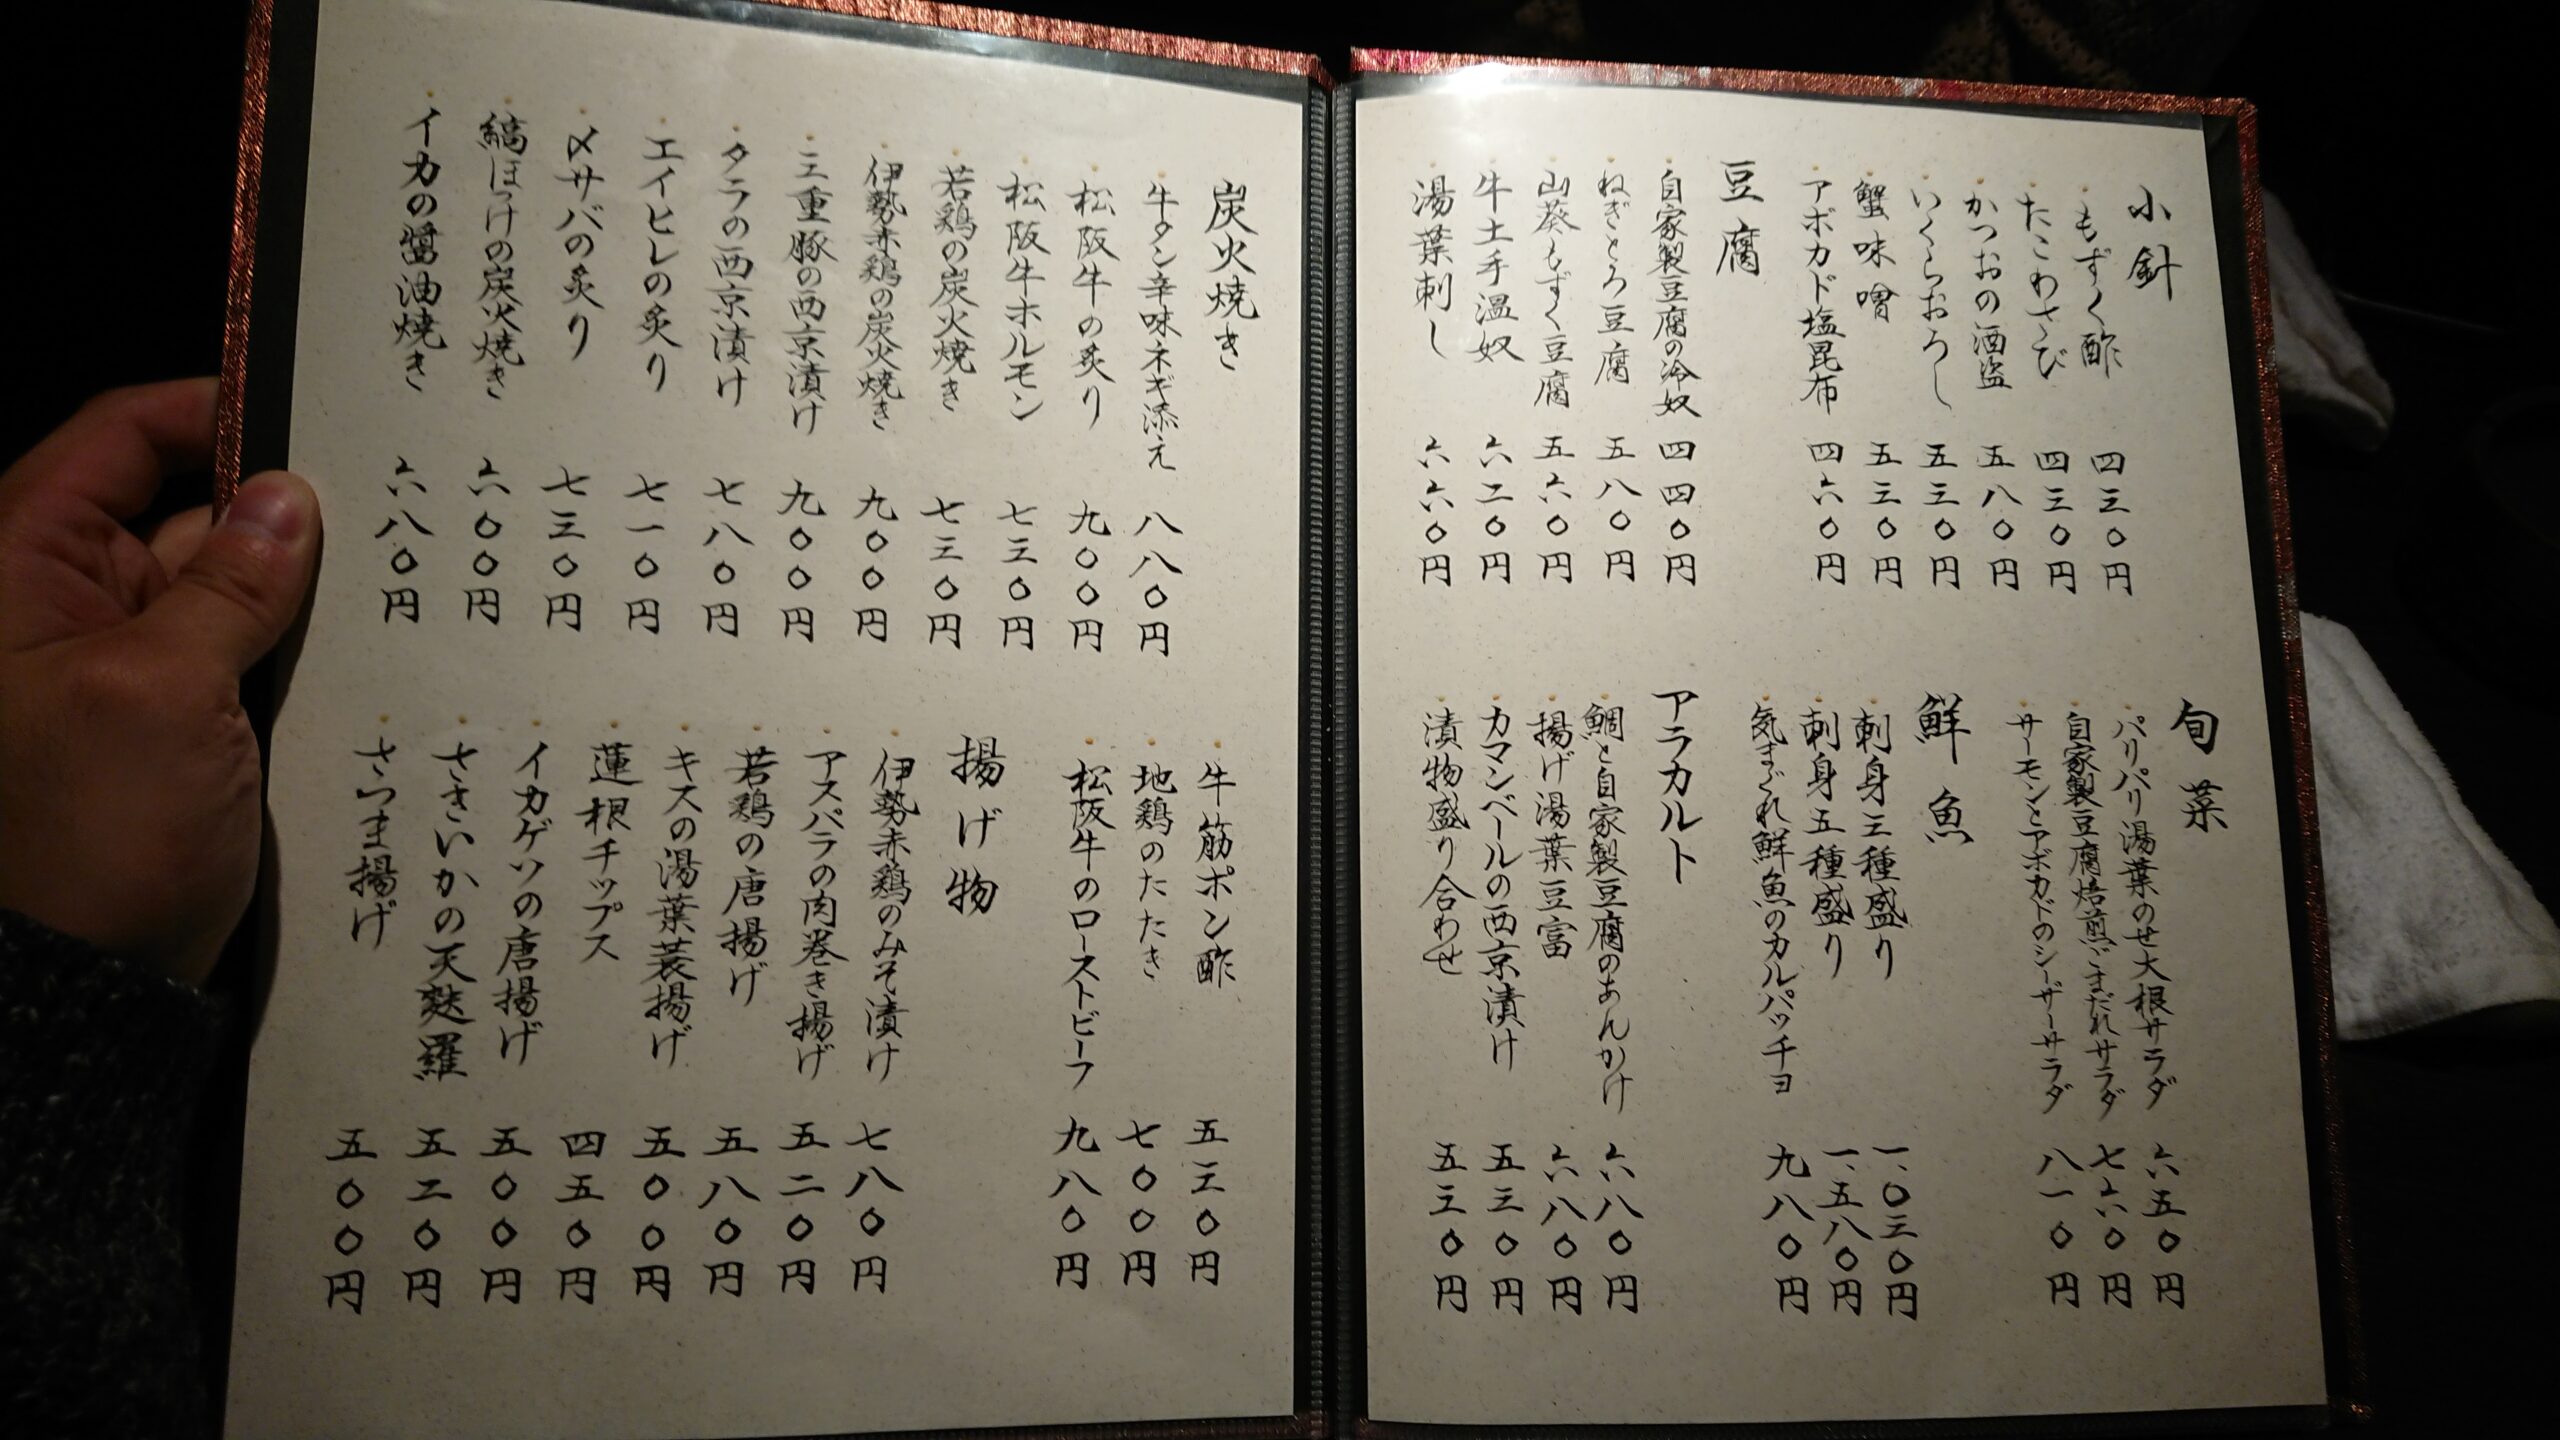 小針
もずく酢 四三〇円
たこわさび 四三〇円
かつおの酒盗 五八〇円
いくらおろし 五三〇円
蟹味噌 五三〇円
アボカド塩昆布 四六〇円
豆腐
自家製豆腐の冷奴 四四〇円
ねぎとろ豆腐 五八〇円
山葵もずく豆腐 五六〇円
牛土手温奴 六二〇円
湯葉刺し 六六〇円
旬菜
パリパリ湯葉のせ大根サラダ 六五〇円
自家製豆腐焙煎ごまだれサラダ 七六〇円
サーモンとアボカドのシーザーサラダ 八一〇円
鮮魚
刺身三種盛り 一、〇三〇円
刺身五種盛り 一、五八〇円
気まぐれ鮮魚のカルパッチョ 九八〇円
アラカルト
鯛と自家製豆腐のあんかけ 六八〇円
揚げ湯葉豆富 六八〇円
カマンベールの西京漬け 五三〇円
漬物盛り合わせ 五三〇円
炭火焼き
牛タン辛味ネギ添え 八八〇円
松阪牛の炙り 九〇〇円
松阪牛ホルモン 七三〇円
若鶏の炭火焼き 七三〇円
伊勢赤鶏の炭火焼き 九〇〇円
三重豚の西京漬け 九〇〇円
タラの西京漬け 七八〇円
エイヒレの炙り 七一〇円
〆サバの炙り 七三〇円
縞ほっけの炭火焼き 六〇〇円
イカの醤油焼き 六八〇円
牛筋ポン酢 五三〇円
地鶏のたたき 七〇〇円
松阪牛のローストビーフ 九八〇円
揚げ物
伊勢赤鶏のみそ漬け 七八〇円
アスパラの肉巻き揚げ 五二〇円
若鶏の唐揚げ 五八〇円
キスの湯葉蓑揚げ 五〇〇円
蓮根チップス 四五〇円
イカゲソの唐揚げ 五〇〇円
さきいかの天麩羅 五二〇円
さつま揚げ 五〇〇円